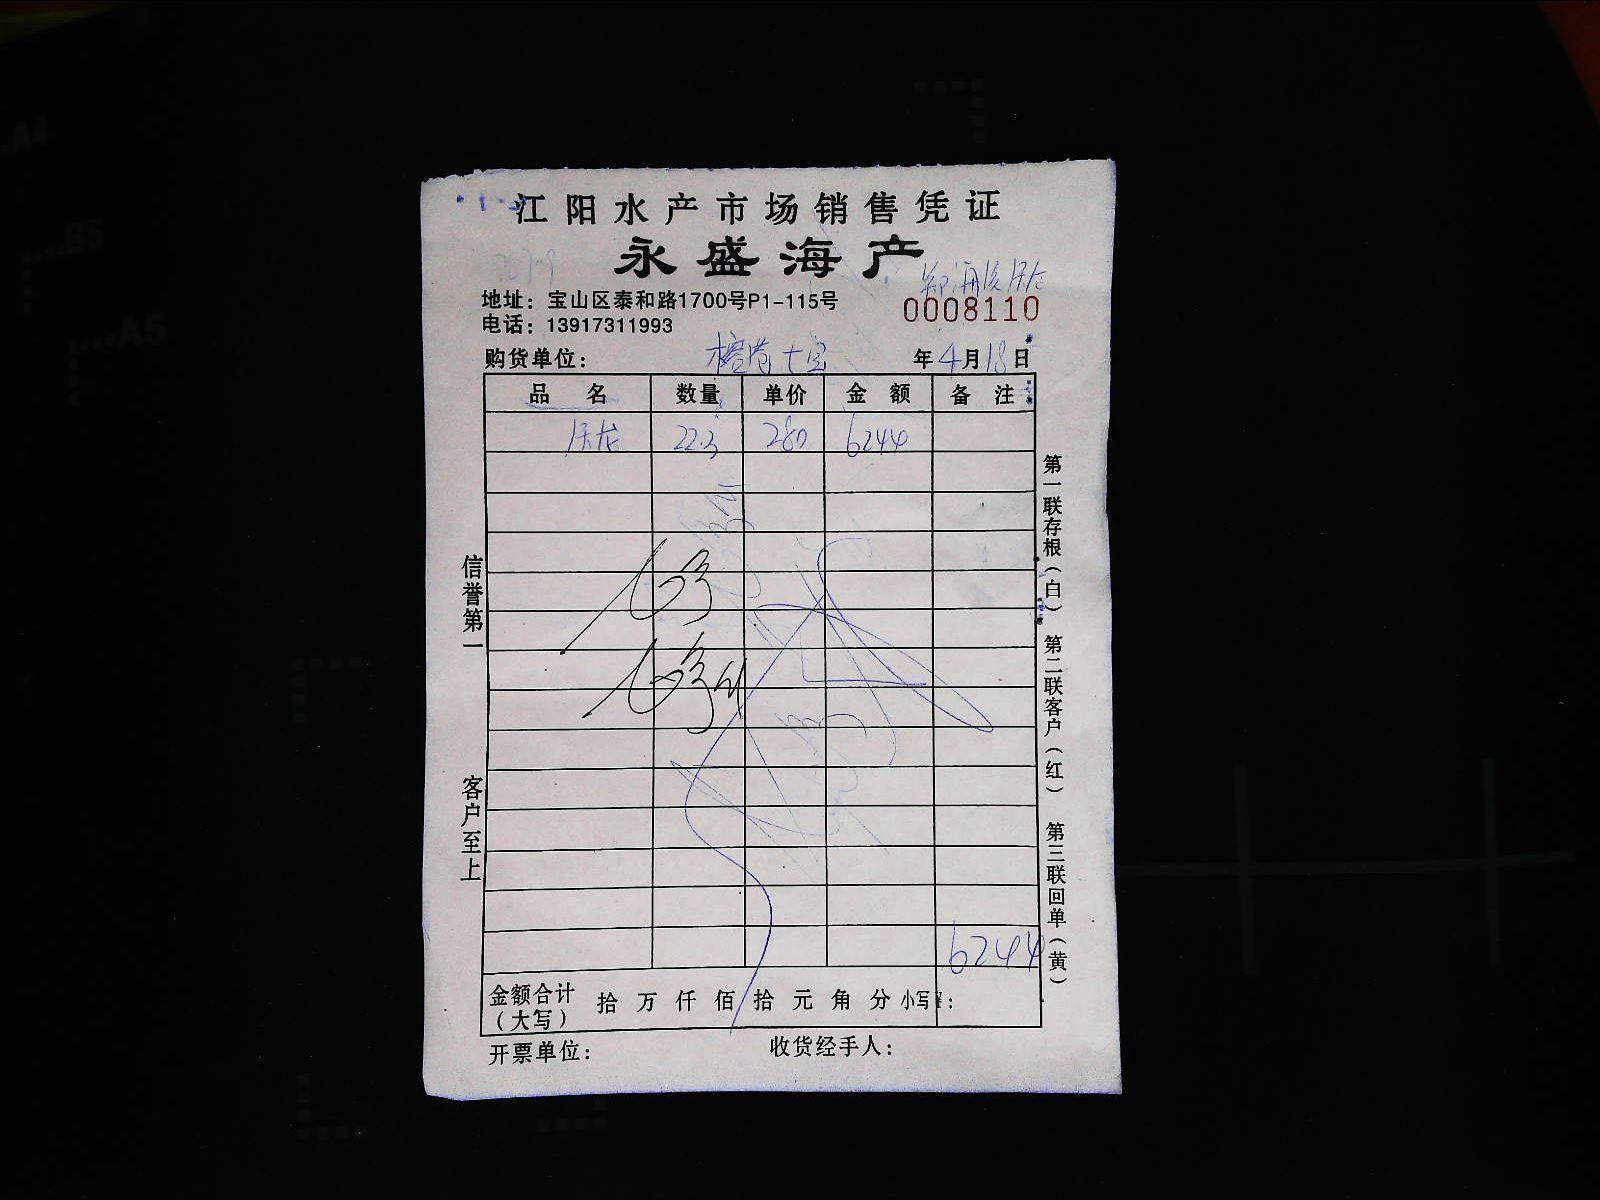 江阳水产市场销售凭证
永盛海产
地址：宝山区泰和路1700号P1-115号
0008110
电话：13917311993
购货单位： 年4月18日
品名 数量 单价 金额 备注
22.3 280 6244
信誉第一
客户至上
第一联存根（白） 第二联客户（红） 第三联回单（黄）
6244
金额合计（大写） 拾 万 仟 佰 拾 元 角 分 小写¥：
开票单位： 收货经手人：